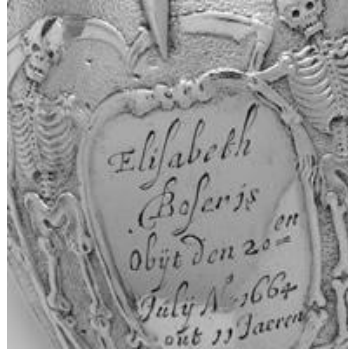 Elisabeth
Boseris
Obijt den 20en
Julij Nº 1664
out 11 Jaeren